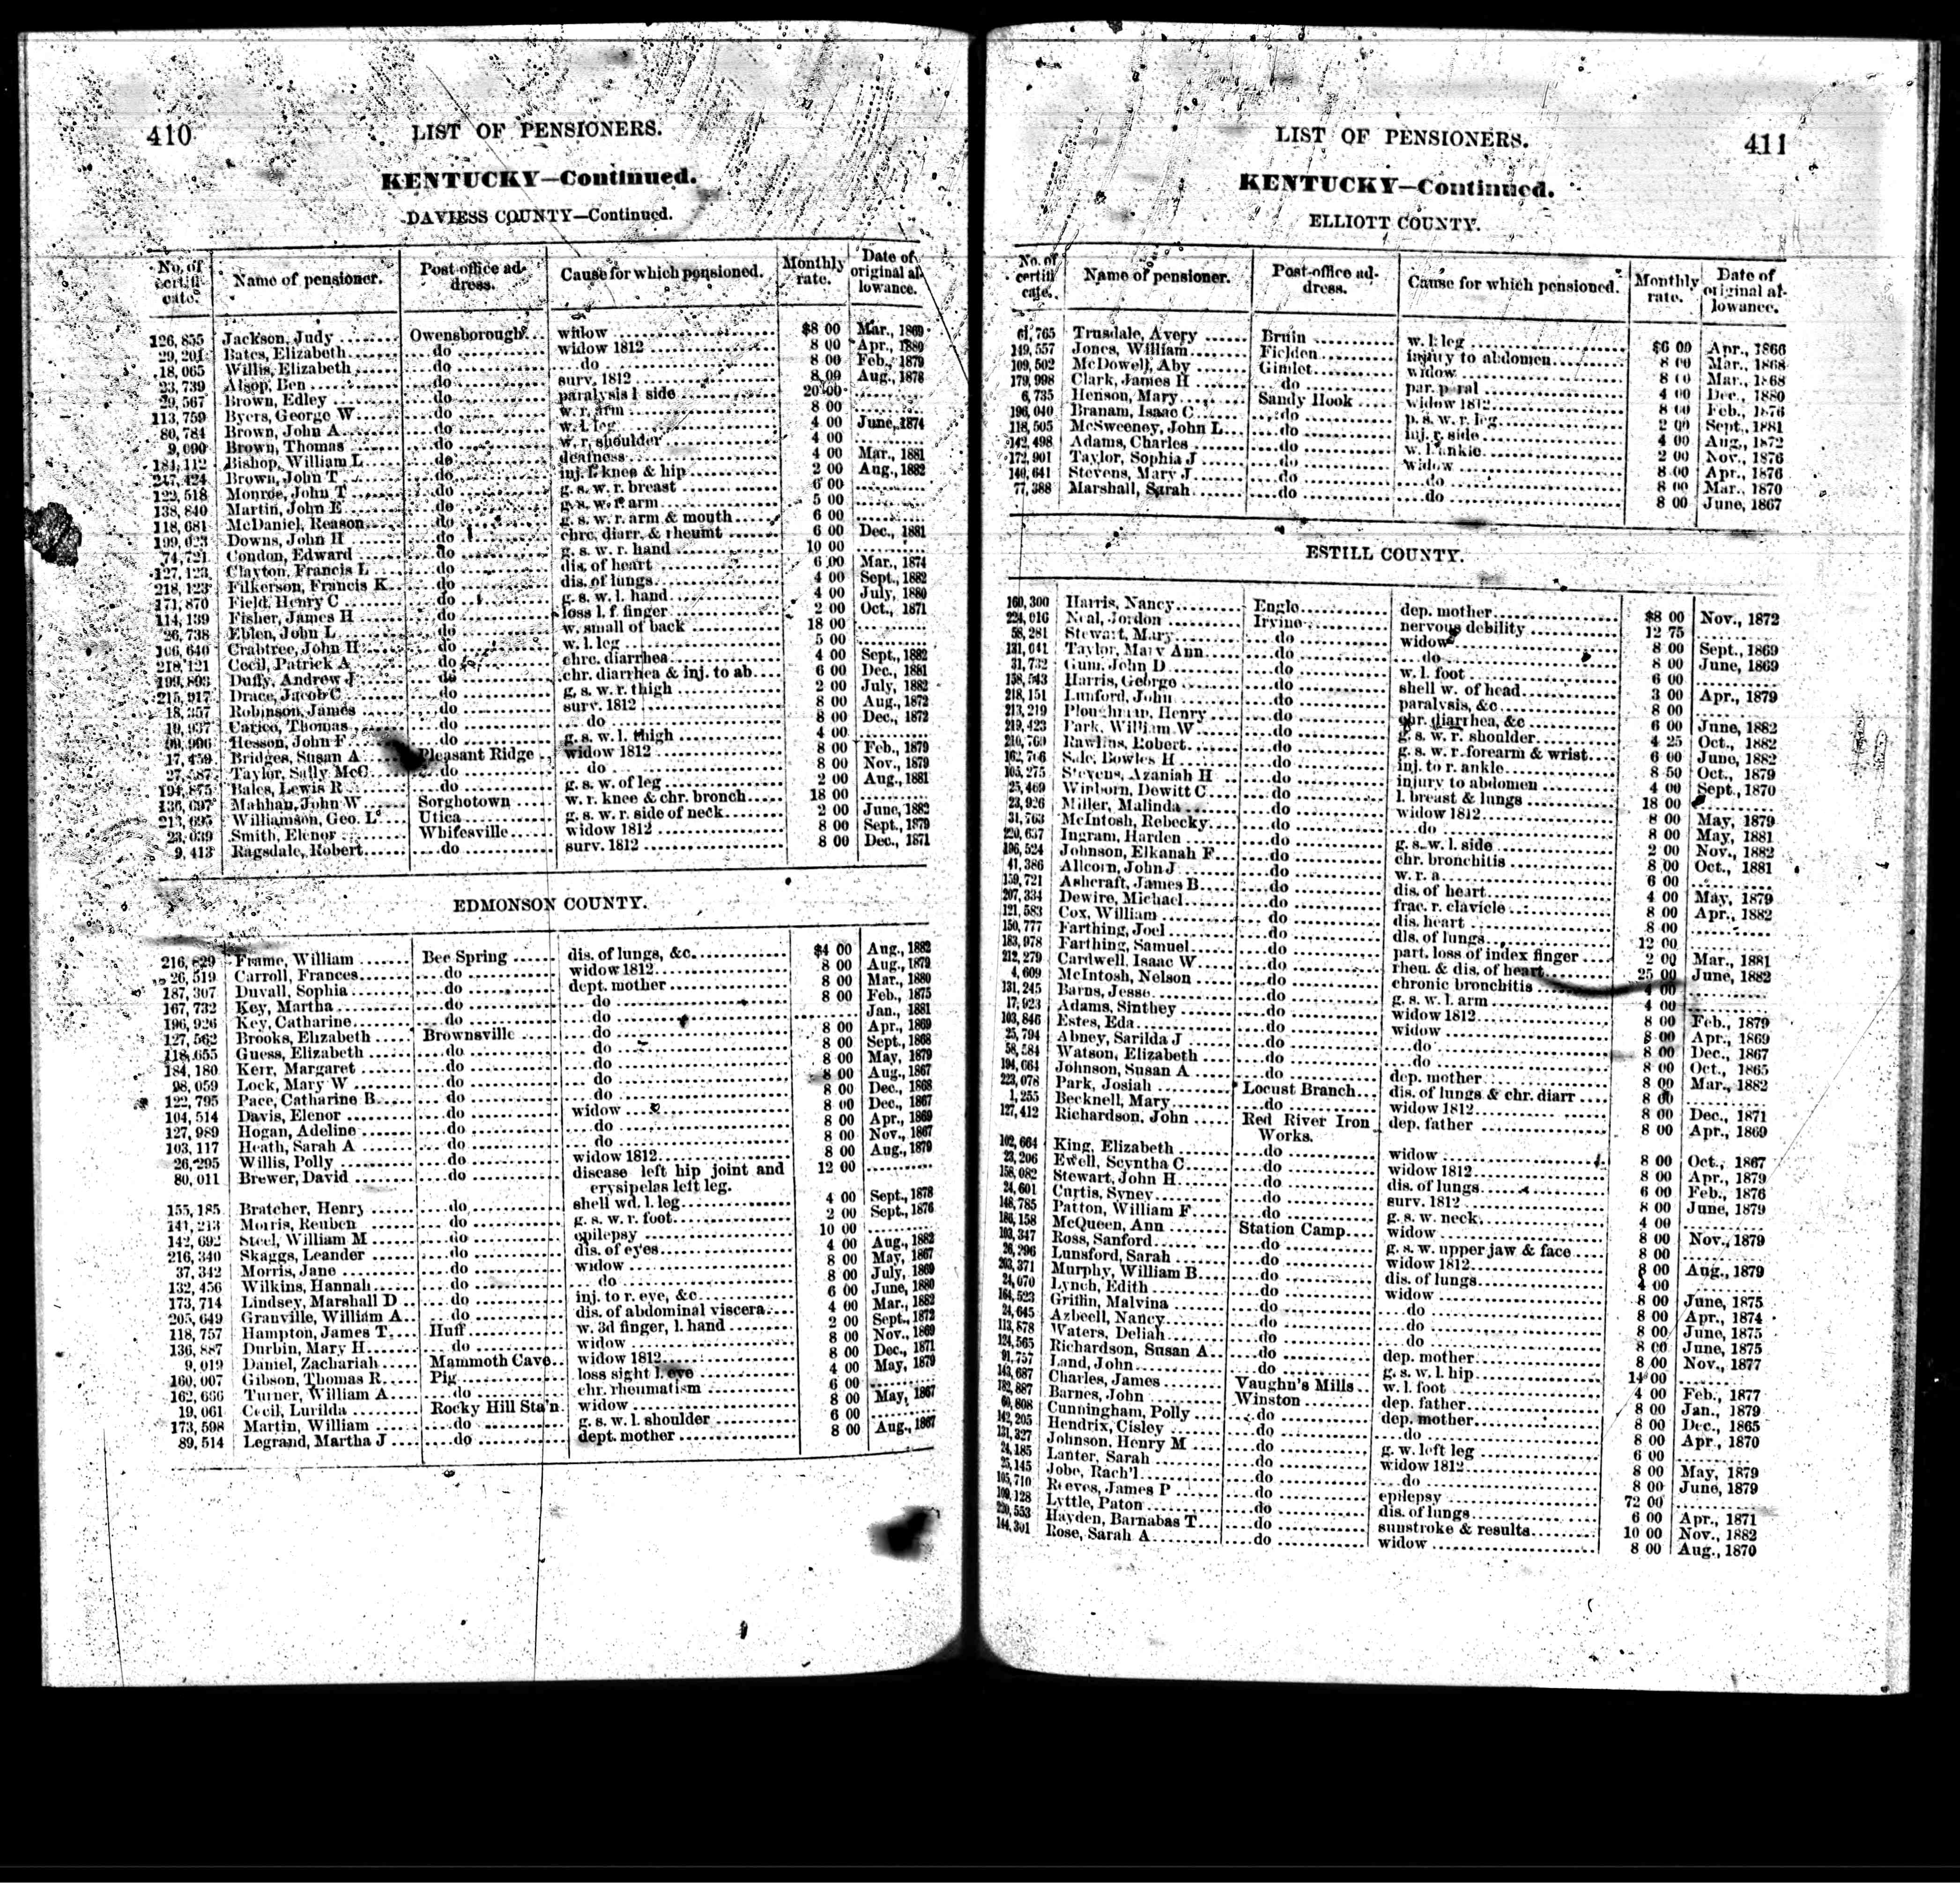 410
LIST OF PENSIONERS.
KENTUCKY—Continued.
DAVIESS COUNTY—Continued.
No. of certifi- cate. Name of pensioner. Post-office ad- dress. Cause for which pensioned. Monthly rate. Date of original al- lowance.
126,855 Jackson, Judy Owensborough widow $8 00 Mar., 1869
29,201 Bates, Elizabeth do widow 1812 8 00 Apr., 1880
18,065 Willis, Elizabeth do do 8 00 Feb., 1879
23,739 Alsop, Ben do surv. 1812 8 00 Aug., 1878
29,567 Brown, Edley do paralysis l side 20 00
113,759 Byers, George W do w. r. arm 8 00
80,784 Brown, John A do w. l. leg 4 00 June, 1874
9,090 Brown, Thomas do w. r. shoulder 4 00
181,112 Bishop, William L do deafness 4 00 Mar., 1881
217,424 Brown, John T do inj. l. knee & hip 2 00 Aug., 1882
122,518 Monroe, John T do g. s. w. r. breast 6 00
138,840 Martin, John E do g. s. w. r. arm 5 00
118,681 McDaniel, Reason do g. s. w. r. arm & mouth 6 00
199,023 Downs, John H do chrc. diarr. & rheumt 6 00 Dec., 1881
74,721 Condon, Edward do g. s. w. r. hand 10 00
127,123 Clayton, Francis L do dis. of heart 6 00 Mar., 1874
218,123 Filkerson, Francis K do dis. of lungs 4 00 Sept., 1882
171,870 Field, Henry C do g. s. w. l. hand 4 00 July, 1880
114,139 Fisher, James H do loss l. f. finger 2 00 Oct., 1871
26,738 Eblen, John L do w. small of back 18 00
106,640 Crabtree, John H do w. l. leg 5 00
218,121 Cecil, Patrick A do chrc. diarrhea 4 00 Sept., 1882
199,893 Duffy, Andrew J do chr. diarrhea & inj. to ab 6 00 Dec., 1881
215,917 Drace, Jacob C do g. s. w. r. thigh 2 00 July, 1882
18,357 Robinson, James do surv. 1812 8 00 Aug., 1872
10,937 Carico, Thomas do do 8 00 Dec., 1872
99,906 Hesson, John F do g. s. w. l. thigh 4 00
17,459 Bridges, Susan A Pleasant Ridge widow 1812 8 00 Feb., 1879
27,587 Taylor, Sally McC do do 8 00 Nov., 1879
194,875 Bales, Lewis R do g. s. w. of leg 2 00 Aug., 1881
136,697 Mahhan, John W Sorghotown w. r. knee & chr. bronch 18 00
213,695 Williamson, Geo. L Utica g. s. w. r. side of neck 2 00 June, 1882
23,039 Smith, Elenor Whitesville widow 1812 8 00 Sept., 1879
9,413 Ragsdale, Robert do surv. 1812 8 00 Dec., 1871
EDMONSON COUNTY.
216,829 Frame, William Bee Spring dis. of lungs, &c. $4 00 Aug., 1882
26,519 Carroll, Frances do widow 1812 8 00 Aug., 1879
187,307 Duvall, Sophia do dept. mother 8 00 Mar., 1880
167,732 Key, Martha do do 8 00 Feb., 1875
196,926 Key, Catharine do do Jan., 1881
127,562 Brooks, Elizabeth Brownsville do 8 00 Apr., 1869
118,655 Guess, Elizabeth do do 8 00 Sept., 1868
184,180 Kerr, Margaret do do 8 00 May, 1879
98,059 Lock, Mary W do do 8 00 Aug., 1867
122,795 Pace, Catharine B do do 8 00 Dec., 1868
104,514 Davis, Elenor do widow 8 00 Dec., 1867
127,989 Hogan, Adeline do do 8 00 Apr., 1869
103,117 Heath, Sarah A do do 8 00 Nov., 1867
26,295 Willis, Polly do widow 1812 8 00 Aug., 1879
80,011 Brewer, David do disease left hip joint and 12 00
erysipelas left leg.
155,185 Bratcher, Henry do shell wd. l. leg 4 00 Sept., 1878
141,213 Morris, Reuben do g. s. w. r. foot 2 00 Sept., 1876
142,692 Steel, William M do epilepsy 10 00
216,340 Skaggs, Leander do dis. of eyes 4 00 Aug., 1882
37,342 Morris, Jane do widow 8 00 May, 1867
132,456 Wilkins, Hannah do do 8 00 July, 1869
173,714 Lindsey, Marshall D do inj. to r. eye, &c 6 00 June, 1880
205,649 Granville, William A do dis. of abdominal viscera 4 00 Mar., 1882
118,757 Hampton, James T Huff w. 3d finger, l. hand 2 00 Sept., 1872
136,887 Durbin, Mary H do widow 8 00 Nov., 1869
9,019 Daniel, Zachariah Mammoth Cave widow 1812 8 00 Dec., 1871
160,007 Gibson, Thomas R Pig loss sight l. eye 4 00 May, 1879
162,656 Turner, William A do chr. rheumatism 6 00
19,061 Cecil, Lurilda Rocky Hill Sta'n widow 8 00 May, 1867
173,598 Martin, William do g. s. w. l. shoulder 6 00
89,514 Legrand, Martha J do dept. mother 8 00 Aug., 1867
LIST OF PENSIONERS.
411
KENTUCKY—Continued.
ELLIOTT COUNTY.
No. of certifi- cate. Name of pensioner. Post-office ad- dress. Cause for which pensioned. Monthly rate. Date of original al- lowance.
61,765 Trusdale, Avery Bruin w. l. leg $6 00 Apr., 1866
149,557 Jones, William Fielden injury to abdomen 8 00 Mar., 1868
109,502 McDowell, Aby Gimlet widow 8 00 Mar., 1868
179,998 Clark, James H do par. p ral 4 00 Dec., 1880
6,735 Henson, Mary Sandy Hook widow 1812 8 00 Feb., 1876
196,040 Branam, Isaac C do p. s. w. r. leg 2 00 Sept., 1881
118,505 McSweeney, John L do inj. r. side 4 00 Aug., 1872
142,498 Adams, Charles do w. l. ankle 2 00 Nov., 1876
172,901 Taylor, Sophia J do widow 8 00 Apr., 1876
140,641 Stevens, Mary J do do 8 00 Mar., 1870
77,388 Marshall, Sarah do do 8 00 June, 1867
ESTILL COUNTY.
160,300 Harris, Nancy Englo dep. mother $8 00 Nov., 1872
224,016 Neal, Jordon Irvine nervous debility 12 75
58,281 Stewart, Mary do widow 8 00 Sept., 1869
131,041 Taylor, Mary Ann do do 8 00 June, 1869
31,732 Gum, John D do w. l. foot 6 00
158,543 Harris, George do shell w. of head 3 00 Apr., 1879
218,151 Lunford, John do paralysis, &c 8 00
213,219 Ploughman, Henry do chr. diarrhea, &c 6 00 June, 1882
219,423 Park, William W do g. s. w. r. shoulder 4 25 Oct., 1882
210,760 Rawlins, Robert do g. s. w. r. forearm & wrist 6 00 June, 1882
162,706 Sale, Bowles H do inj. to r. ankle 8 50 Oct., 1879
105,275 Stevens, Azaniah H do injury to abdomen 4 00 Sept., 1870
25,469 Winborn, Dewitt C do l. breast & lungs 18 00
23,926 Miller, Malinda do widow 1812 8 00 May, 1879
31,763 McIntosh, Rebecky do do 8 00 May, 1881
220,637 Ingram, Harden do g. s. w. l. side 2 00 Nov., 1882
196,524 Johnson, Elkanah F do chr. bronchitis 8 00 Oct., 1881
41,386 Allcorn, John J do w. r. a 6 00
159,721 Ashcraft, James B do dis. of heart 4 00 May, 1879
207,334 Dewire, Michael do frac. r. clavicle 8 00 Apr., 1882
121,583 Cox, William do dis. heart 8 00
150,777 Farthing, Joel do dis. of lungs 12 00
183,978 Farthing, Samuel do part. loss of index finger 2 00 Mar., 1881
212,279 Cardwell, Isaac W do rheu. & dis. of heart 25 00 June, 1882
4,609 McIntosh, Nelson do chronic bronchitis 4 00
131,245 Barns, Jesse do g. s. w. l. arm 4 00
17,923 Adams, Sinthey do widow 1812 8 00 Feb., 1879
103,846 Estes, Eda do widow 8 00 Apr., 1869
25,794 Abney, Sarilda J do do 8 00 Dec., 1867
58,584 Watson, Elizabeth do do 8 00 Oct., 1865
194,664 Johnson, Susan A do dep. mother 8 00 Mar., 1882
223,078 Park, Josiah Locust Branch dis. of lungs & chr. diarr 8 00
1,255 Becknell, Mary do widow 1812 8 00 Dec., 1871
127,412 Richardson, John Red River Iron dep. father 8 00 Apr., 1869
Works.
102,664 King, Elizabeth do widow 8 00 Oct., 1867
23,206 Ewell, Scyntha C do widow 1812 8 00 Apr., 1879
158,082 Stewart, John H do dis. of lungs 6 00 Feb., 1876
24,601 Curtis, Syney do surv. 1812 8 00 June, 1879
148,785 Patton, William F do g. s. w. neck 4 00
186,158 McQueen, Ann Station Camp widow 8 00 Nov., 1879
103,347 Ross, Sanford do g. s. w. upper jaw & face 8 00
26,296 Lunsford, Sarah do widow 1812 8 00 Aug., 1879
203,371 Murphy, William B do dis. of lungs 4 00
24,070 Lynch, Edith do widow 8 00 June, 1875
164,523 Griffin, Malvina do do 8 00 Apr., 1874
24,645 Azbeell, Nancy do do 8 00 June, 1875
113,878 Waters, Deliah do do 8 00 June, 1875
124,565 Richardson, Susan A do dep. mother 8 00 Nov., 1877
91,757 Land, John do g. s. w. l. hip 14 00
143,687 Charles, James Vaughn's Mills w. l. foot 4 00 Feb., 1877
182,887 Barnes, John Winston dep. father 8 00 Jan., 1879
60,808 Cunningham, Polly do dep. mother 8 00 Dec., 1865
142,205 Hendrix, Cisley do do 8 00 Apr., 1870
131,327 Johnson, Henry M do g. w. left leg 6 00
24,185 Lanter, Sarah do widow 1812 8 00 May, 1879
25,145 Jobe, Rach'l do do 8 00 June, 1879
105,710 Reeves, James P do epilepsy 72 00
109,128 Lyttle, Paton do dis. of lungs 6 00 Apr., 1871
220,553 Hayden, Barnabas T do sunstroke & results 10 00 Nov., 1882
144,301 Rose, Sarah A do widow 8 00 Aug., 1870